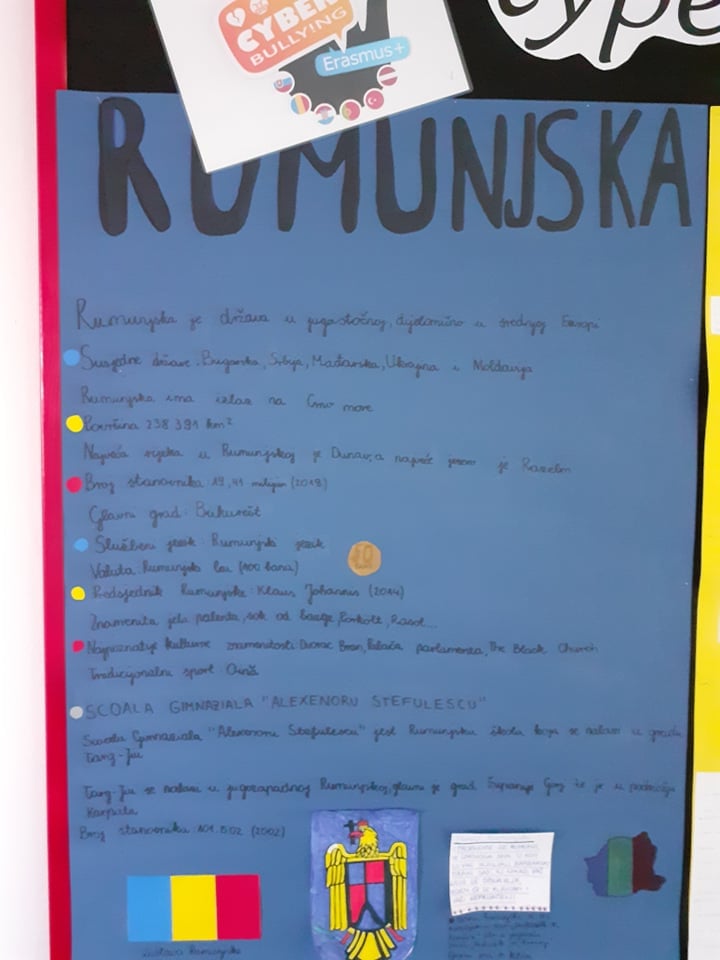 CYBER
BULLYING
Erasmus+
type
RUMUNJSKA
Rumunjska je država u jugoistočnoj, djelomično u srednjoj Europi
Susjedne države: Bugarska, Srbija, Mađarska, Ukrajina i Moldavija
Rumunjska ima izlaz na Crno more
Površina 238 391 km²
Najveća rijeka u Rumunjskoj je Dunav, a najveće jezero je Razelm
Broj stanovnika: 19,41 milijun (2019)
Glavni grad: Bukurešt
Službeni jezik: Rumunjski jezik
Valuta: Rumunjski leu (100 bana)
10
Predsjednik Rumunjske: Klaus Johannis (2014)
Znamenita jela palenta, sok od bazge, Rasol...
Najpoznatije kulturne znamenitosti Dvorac Bran, Palača parlamenta, The Black Church
Tradicionalni sport: Oină
SCOALA GIMNAZIALA "ALEXENORU STEFULESCU"
Scoala Gimnaziala "Alexenoru Stefulescu" jest Rumunjska škola koja se nalazi u gradu
Targ-Jiu
Targ-Jiu se nalazi u jugozapadnoj Rumunjskoj, glavni je grad županije Gorj te je u podnožju
Karpata
Broj stanovnika: (2002)
Zastava Rumunjske